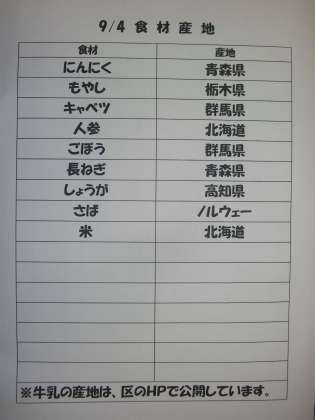 9/4 食 材 産 地
食材 産地
にんにく 青森県
もやし 栃木県
キャベツ 群馬県
人参 北海道
ごぼう 群馬県
長ねぎ 青森県
しょうが 高知県
さば ノルウェー
米 北海道
※牛乳の産地は、区のHPで公開しています。